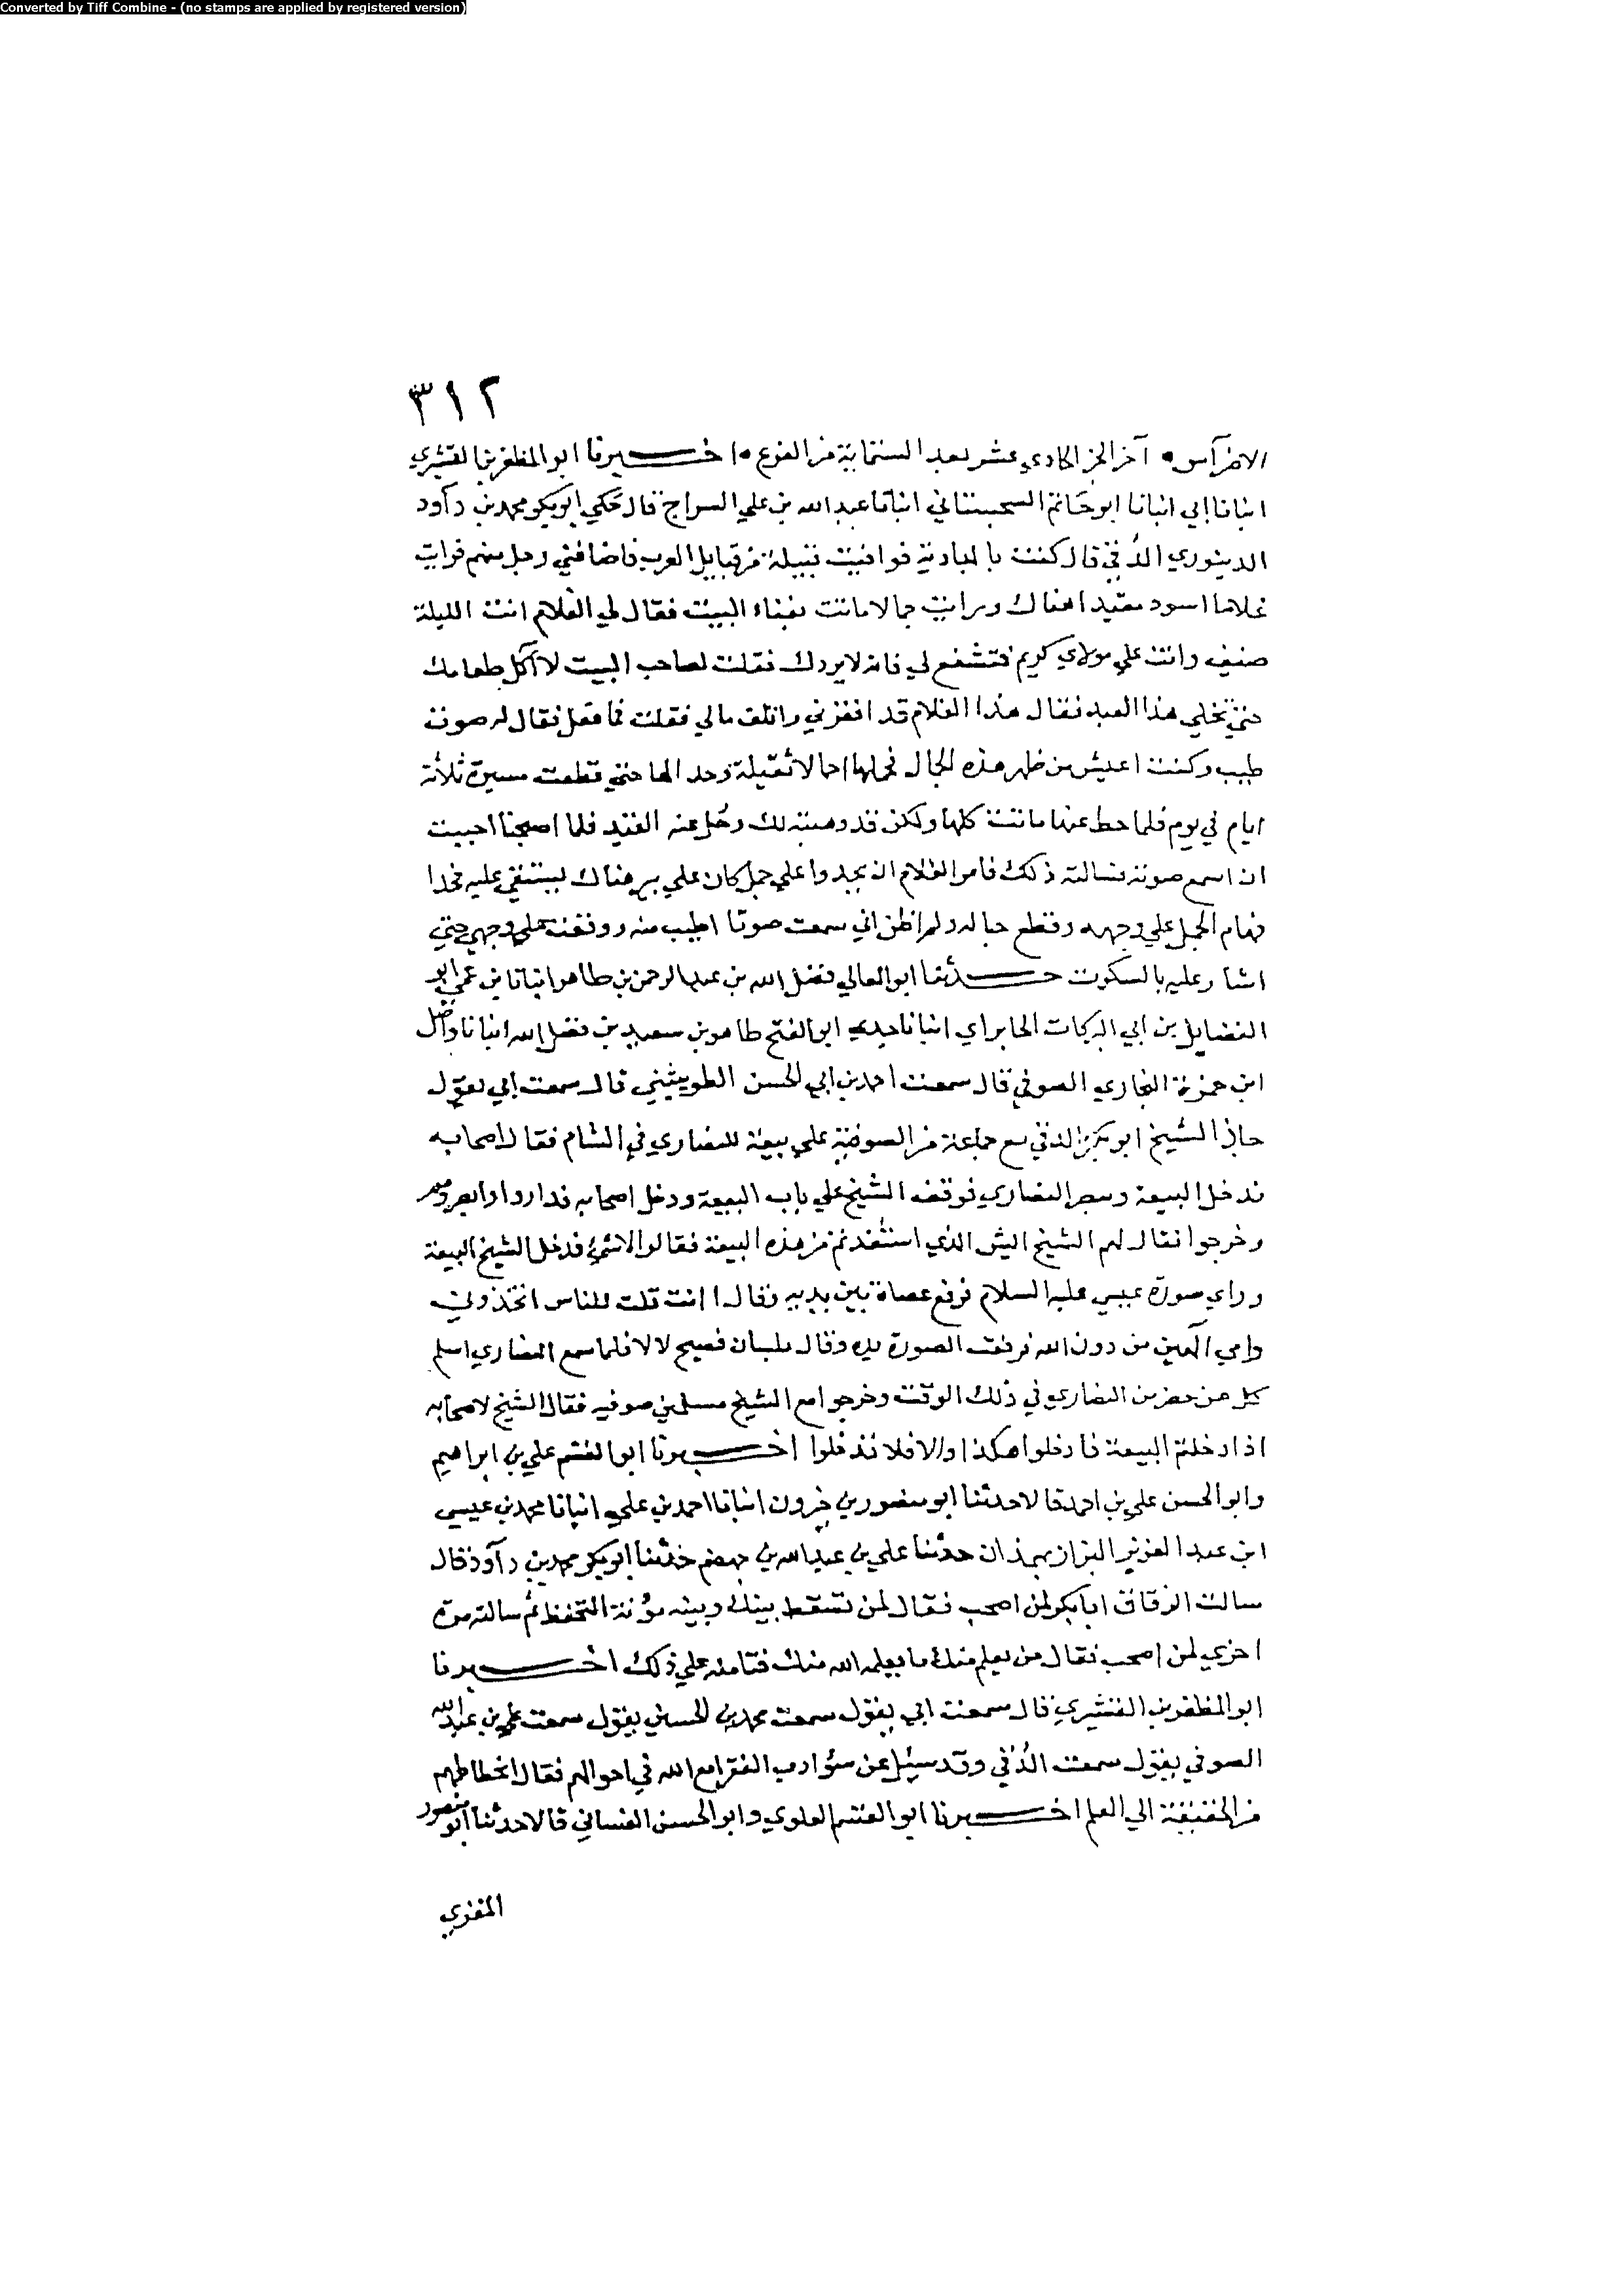 Converted by Tiff Combine - (no stamps are applied by registered version)
٣١٢
الافراس • آخر الجز الحادي عشر بعد الستمائة من الفرع • اخبرنا ابو المظفر بن القشيري
انبانا ابي انبانا ابو حاتم السجستاني انبانا عبد الله بن علي السراج قال حكي ابو بكر محمد بن دآود
الدينوري الدقي قال كنت بالبادية فوافيت قبيلة من قبايل العرب فاضافني رجل منهم فرايت
غلاما اسود مقيدا هناك ورايت جمالا ماتت بفناء البيت فقال لي الغلام انت الليلة
ضيف وانت علي مولاي كريم فتشفع لي فانه لا يردك فقلت لصاحب البيت لا آكل طعامك
حتي تخلي هذا العبد فقال هذا الغلام قد افقرني واتلف مالي فقلت فما فعل فقال له صوت
طيب وكنت اعيش من ظهر هذه الجمال فحملها احمالا ثقيلة وحدا لها حتي قطعت مسيرة ثلاثة
ايام في يوم فلما حط عنها ماتت كلها ولكن قد وهبته لك وحل عنه القيد فلما اصبحنا احببت
ان اسمع صوته فسالته ذلك فامر الغلام ان يحدوا علي جمل كان علي بير هناك ليستقي عليه فحدا
فهام الجمل علي وجهه وقطع حباله ولم اظن اني سمعت صوتا اطيب منه ووقعت علي وجهي حتي
اشار عليه بالسكوت حدثنا ابو المعالي فضل الله بن عبد الرحمن بن طاهر انبانا بن عمي ابو
الفضايل بن ابي البركات الجابراي انبانا جدي ابو الفتح طاهر بن سعيد بن فضل الله انبانا واصل
ابن حمزة البخاري الصوفي قال سمعت احمد بن ابي الحسن الطويثيني قال سمعت ابي يقول
جاز الشيخ ابو بكر الدقي مع جماعة من الصوفية علي بيعة للنصاري في الشام فقال اصحابه
ندخل البيعة ونبصر النصاري فوقف الشيخ علي باب البيعة ودخل اصحابه فداروا وابصروهم
وخرجوا فقال لهم الشيخ ايش الذي استفدتم من هذه البيعة فقالوا لا شيء فدخل الشيخ البيعة
وراي صورة عيسي عليه السلام فرفع عصاه بين يديه وقال اانت قلت للناس اتخذوني
وامي آلهين من دون الله فرفعت الصورة يده وقال بلسان فصيح لا لا فلما سمع النصاري اسلم
كل من حضر من النصاري في ذلك الوقت وخرجوا مع الشيخ مسلمين صوفيه فقال الشيخ لاصحابه
اذا دخلتم البيعة فادخلوا هكذا والا فلا تدخلوا اخبرنا ابو القسم علي بن ابراهيم
وابو الحسن علي بن احمد قالا حدثنا ابو منصور بن خيرون انبانا احمد بن علي انبانا محمد بن عيسي
ابن عبد العزيز البزاز بهمذان حدثنا علي بن عبد الله بن جهضم حدثنا ابو بكر محمد بن دآود قال
سالت الزقاق ابا بكر لمن اصحب فقال لمن تسقط بينك وبينه مؤنة التحفظ ثم سالته مرة
اخري لمن اصحب فقال من يعلم منك ما يعلمه الله منك فتامنه علي ذلك اخبرنا
ابو المظفر بن القشيري قال سمعت ابي يقول سمعت محمد بن الحسين يقول سمعت علي بن عبد الله
الصوفي يقول سمعت الدقي وقد سيل عن سؤ ادب الفقرا مع الله في احوالهم فقال انحطاطهم
من الحقيقة الي العلم اخبرنا ابو القسم العلوي وابو الحسن الغساني قالا حدثنا ابو منصور
المقري